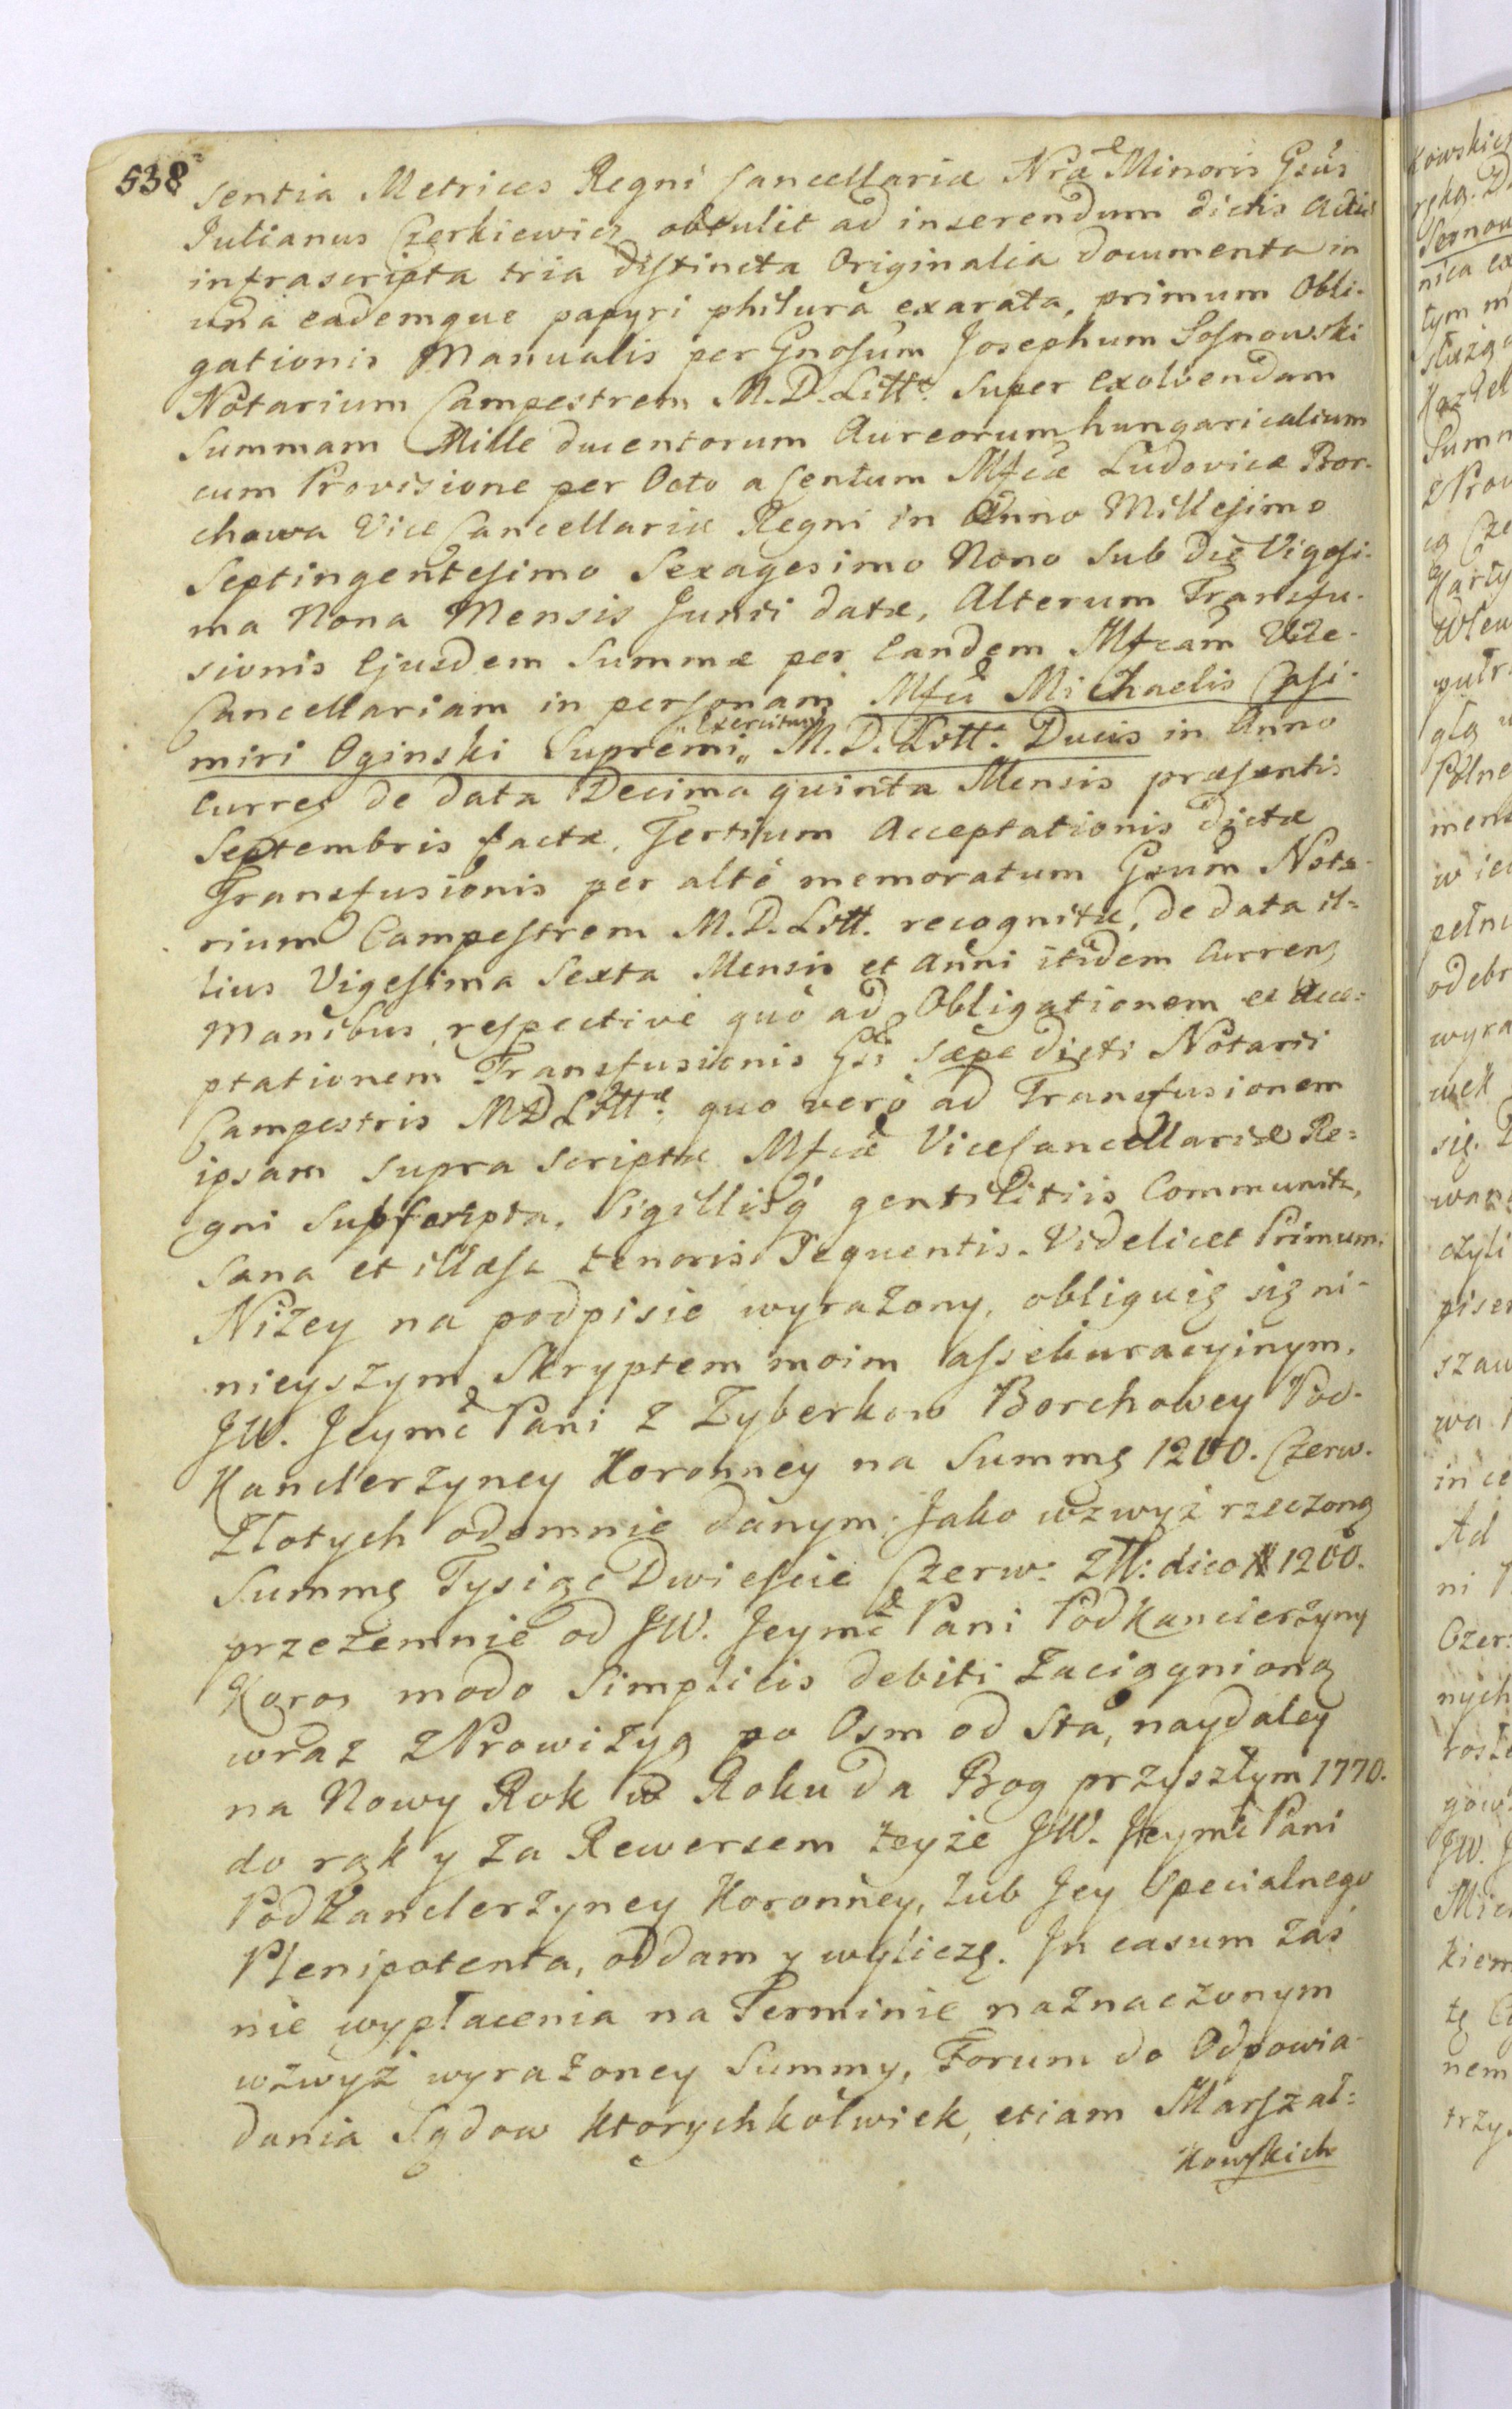 538
sentia Metrices Regni Cancellariæ Nræ Minoris Gsus
Julianus Czerkiewicz obtulit ad inserendum dictis Actis
infrascripta tria distincta Originalia documenta in
una eademque papyri philura exarata, primum Obli-
gationis Manualis per Gnosum Josephum Sosnowski
Notarium Campestrem M.D.Litt. super exolvendam
Summam Mille ducentorum Aureorum hungaricalium
cum Provisione per Octo a Centum Mfcæ Ludovicæ Bor-
chowa Vice Cancellariæ Regni in Anno Millesimo
Septingentesimo Sexagesimo Nono sub die Vigesi-
ma Nona Mensis Junii datæ, Alterum Transfu-
sionis Ejusdem Summæ per Eandem Mfcam Vice-
Cancellariam in personam Mfci Michaelis Casi-
miri Oginski Supremi „Exercituum„ M.D.Litt. Ducis in Anno
curren de data Decima quinta Mensis præsentis
Septembris factæ, Tertium Acceptationis dictæ
Transfusionis per alte memoratum Gsum Nota-
rium Campestrem M.D.Litt. recognitæ, de data il=
lius Vigesima Sexta Mensis et Anni itidem curren
Manibus respective quo ad Obligationem et Acce=
ptationem Transfusionis Gsi sæpe dicti Notarii
Campestris MDLittæ, quo vero ad Transfusionem
ipsam supra scriptæ Mfcæ ViceCancellariæ Re=
gni subscripta, Sigillisq gentilitiis Communita,
Sana et illæsa tenoris Sequentis. Videlicet Primum.
Niżey na podpisie wyrażony, obliguię się ni-
nieyszym Skryptem moim assekuracyinym,
JW. Jeymć Pani z Zyberkow Borchowey Pod-
Kanclerzyney Koronney na Summę 1200. Czerw.
Złotych odemnie danym: Jako wzwyż rzeczoną
Summę Tysiąc Dwieście Czerw: Złł: dico # 1200.
przezemnie od JW. Jeymć Pani PodKanclerzyny
Koron modo Simplicis debiti zaciągnioną
wraz z Prowizyą po Osm od Sta, naydaley
na Nowy Rok w Roku da Bog przyszłym 1770.
do rąk y za Rewersem teyże JW. Jeymć Pani
PodKanclerzyney Koronney, lub Jey Specialnego
Plenipotenta, oddam y wyliczę. In casum zaś
nie wypłacenia na Terminie naznaczonym
wzwyż wyrażoney Summy, Forum do Odpowia-
dania Sądow Ktorychkolwiek, etiam Marszał=
kowskich